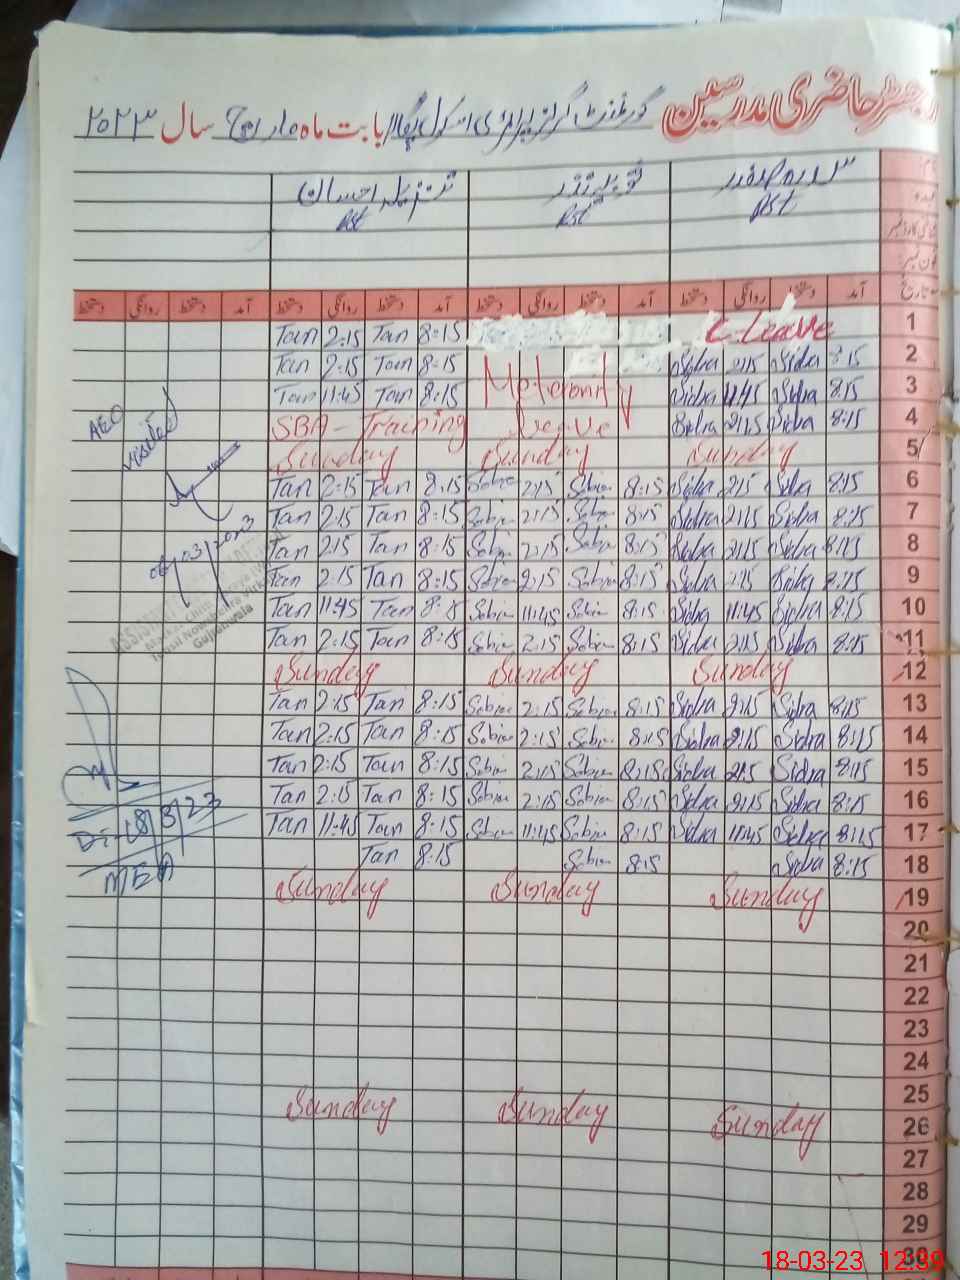 رجسٹر حاضری مدرسین گورنمنٹ گرلز پرائمری اسکول بابت ماہ مارچ سال ۲۰۲۳
سدرہ صفدر
PST
ثوبیہ نذر
PST
تنزیلہ احسان
PST
آمد دستخط روانگی دستخط آمد دستخط روانگی دستخط آمد دستخط روانگی دستخط آمد دستخط روانگی دستخط
Tan 2:15 Tan 8:15 C-Leave 1
Tan 2:15 Tan 8:15 Sidra 2:15 Sidra 8:15 2
Tan 11:45 Tan 8:15 Meternity Sidra 11:45 Sidra 8:15 3
SBA - Training Leave Sidra 2:15 Sidra 8:15 4
Sunday Sunday Sunday 5
Tan 2:15 Tan 8:15 Sobia 2:15 Sobia 8:15 Sidra 2:15 Sidra 8:15 6
Tan 2:15 Tan 8:15 Sobia 2:15 Sobia 8:15 Sidra 2:15 Sidra 8:15 7
Tan 2:15 Tan 8:15 Sobia 2:15 Sobia 8:15 Sidra 2:15 Sidra 8:15 8
Tan 2:15 Tan 8:15 Sobia 2:15 Sobia 8:15 Sidra 2:15 Sidra 8:15 9
Tan 11:45 Tan 8:15 Sobia 11:45 Sobia 8:15 Sidra 11:45 Sidra 8:15 10
Tan 2:15 Tan 8:15 Sobia 2:15 Sobia 8:15 Sidra 2:15 Sidra 8:15 11
Sunday Sunday Sunday 12
Tan 2:15 Tan 8:15 Sobia 2:15 Sobia 8:15 Sidra 2:15 Sidra 8:15 13
Tan 2:15 Tan 8:15 Sobia 2:15 Sobia 8:15 Sidra 2:15 Sidra 8:15 14
Tan 2:15 Tan 8:15 Sobia 2:15 Sobia 8:15 Sidra 2:15 Sidra 8:15 15
Tan 2:15 Tan 8:15 Sobia 2:15 Sobia 8:15 Sidra 2:15 Sidra 8:15 16
Tan 11:45 Tan 8:15 Sobia 11:45 Sobia 8:15 Sidra 11:45 Sidra 8:15 17
Tan 8:15 Sobia 8:15 Sidra 8:15 18
Sunday Sunday Sunday 19
20
21
22
23
24
25
Sunday Sunday Sunday 26
27
28
29
30
AEO
visited
03/2023
Tehsil Nowshera Virkan
Gujranwala
Dt:-18/3/23
MEA
18-03-23 12:39